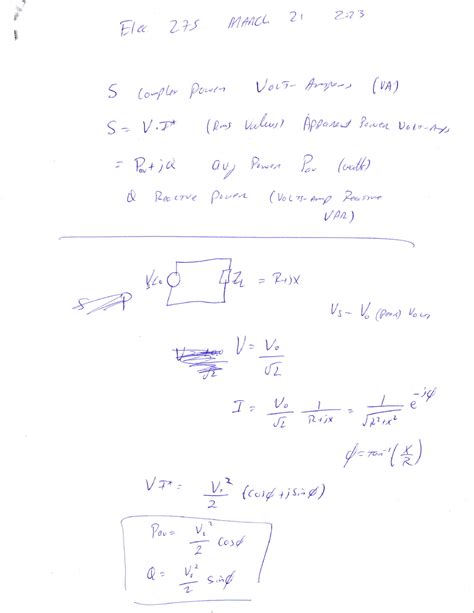 Elec 275 MARCH 21 2023
S Complex Power Volt-Amperes (VA)
S = V·I* (Rms Values) Apparent Power Volt-Amps
= Pav + jQ avg Power Pav (watts)
Q Reactive Power (Volts-Amp Reactive
VAR)
ZL = R+jX
Vs ~ V0 (peak) Volts
V = V0/√2
I = V0/√2 1/(R+jX) = 1/√(R²+X²) e^(-jφ)
φ = tan⁻¹(X/R)
VI* = V0²/2 (cosφ+jsinφ)
Pav = V0²/2 cosφ
Q = V0²/2 sinφ